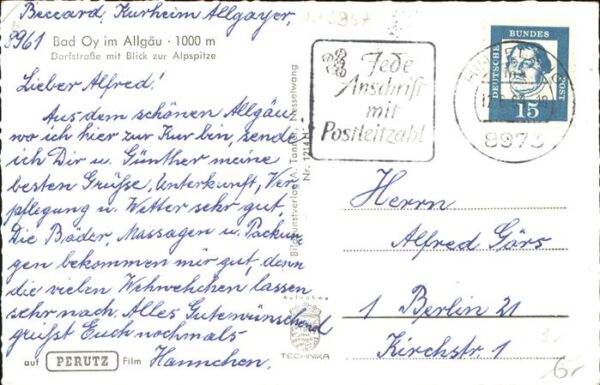 Beccard, Kurheim Allgayer,
8961 Bad Oy im Allgäu · 1000 m
Dorfstraße mit Blick zur Alpspitze
Lieber Alfred!
Aus dem schönen Allgäu,
wo ich hier zur Kur bin, sende
ich Dir u. Günther meine
besten Grüße, Unterkunft, Ver
pflegung u. Wetter sehr gut.
Die Bäder, Massagen u. Packun
gen bekommen mir gut, denn
die vielen Wehwehchen lassen
sehr nach. Alles Gutewünschend
grüßt Euch nochmals
Hannchen.
auf PERUTZ Film
Nesselwang
Nr.
Aufnahme
TECHNIKA
Jede
Anschrift
mit
Postleitzahl
8973
DEUTSCHE BUNDESPOST
15
Herrn
Alfred Görs
1 Berlin 21
Kirchstr. 1